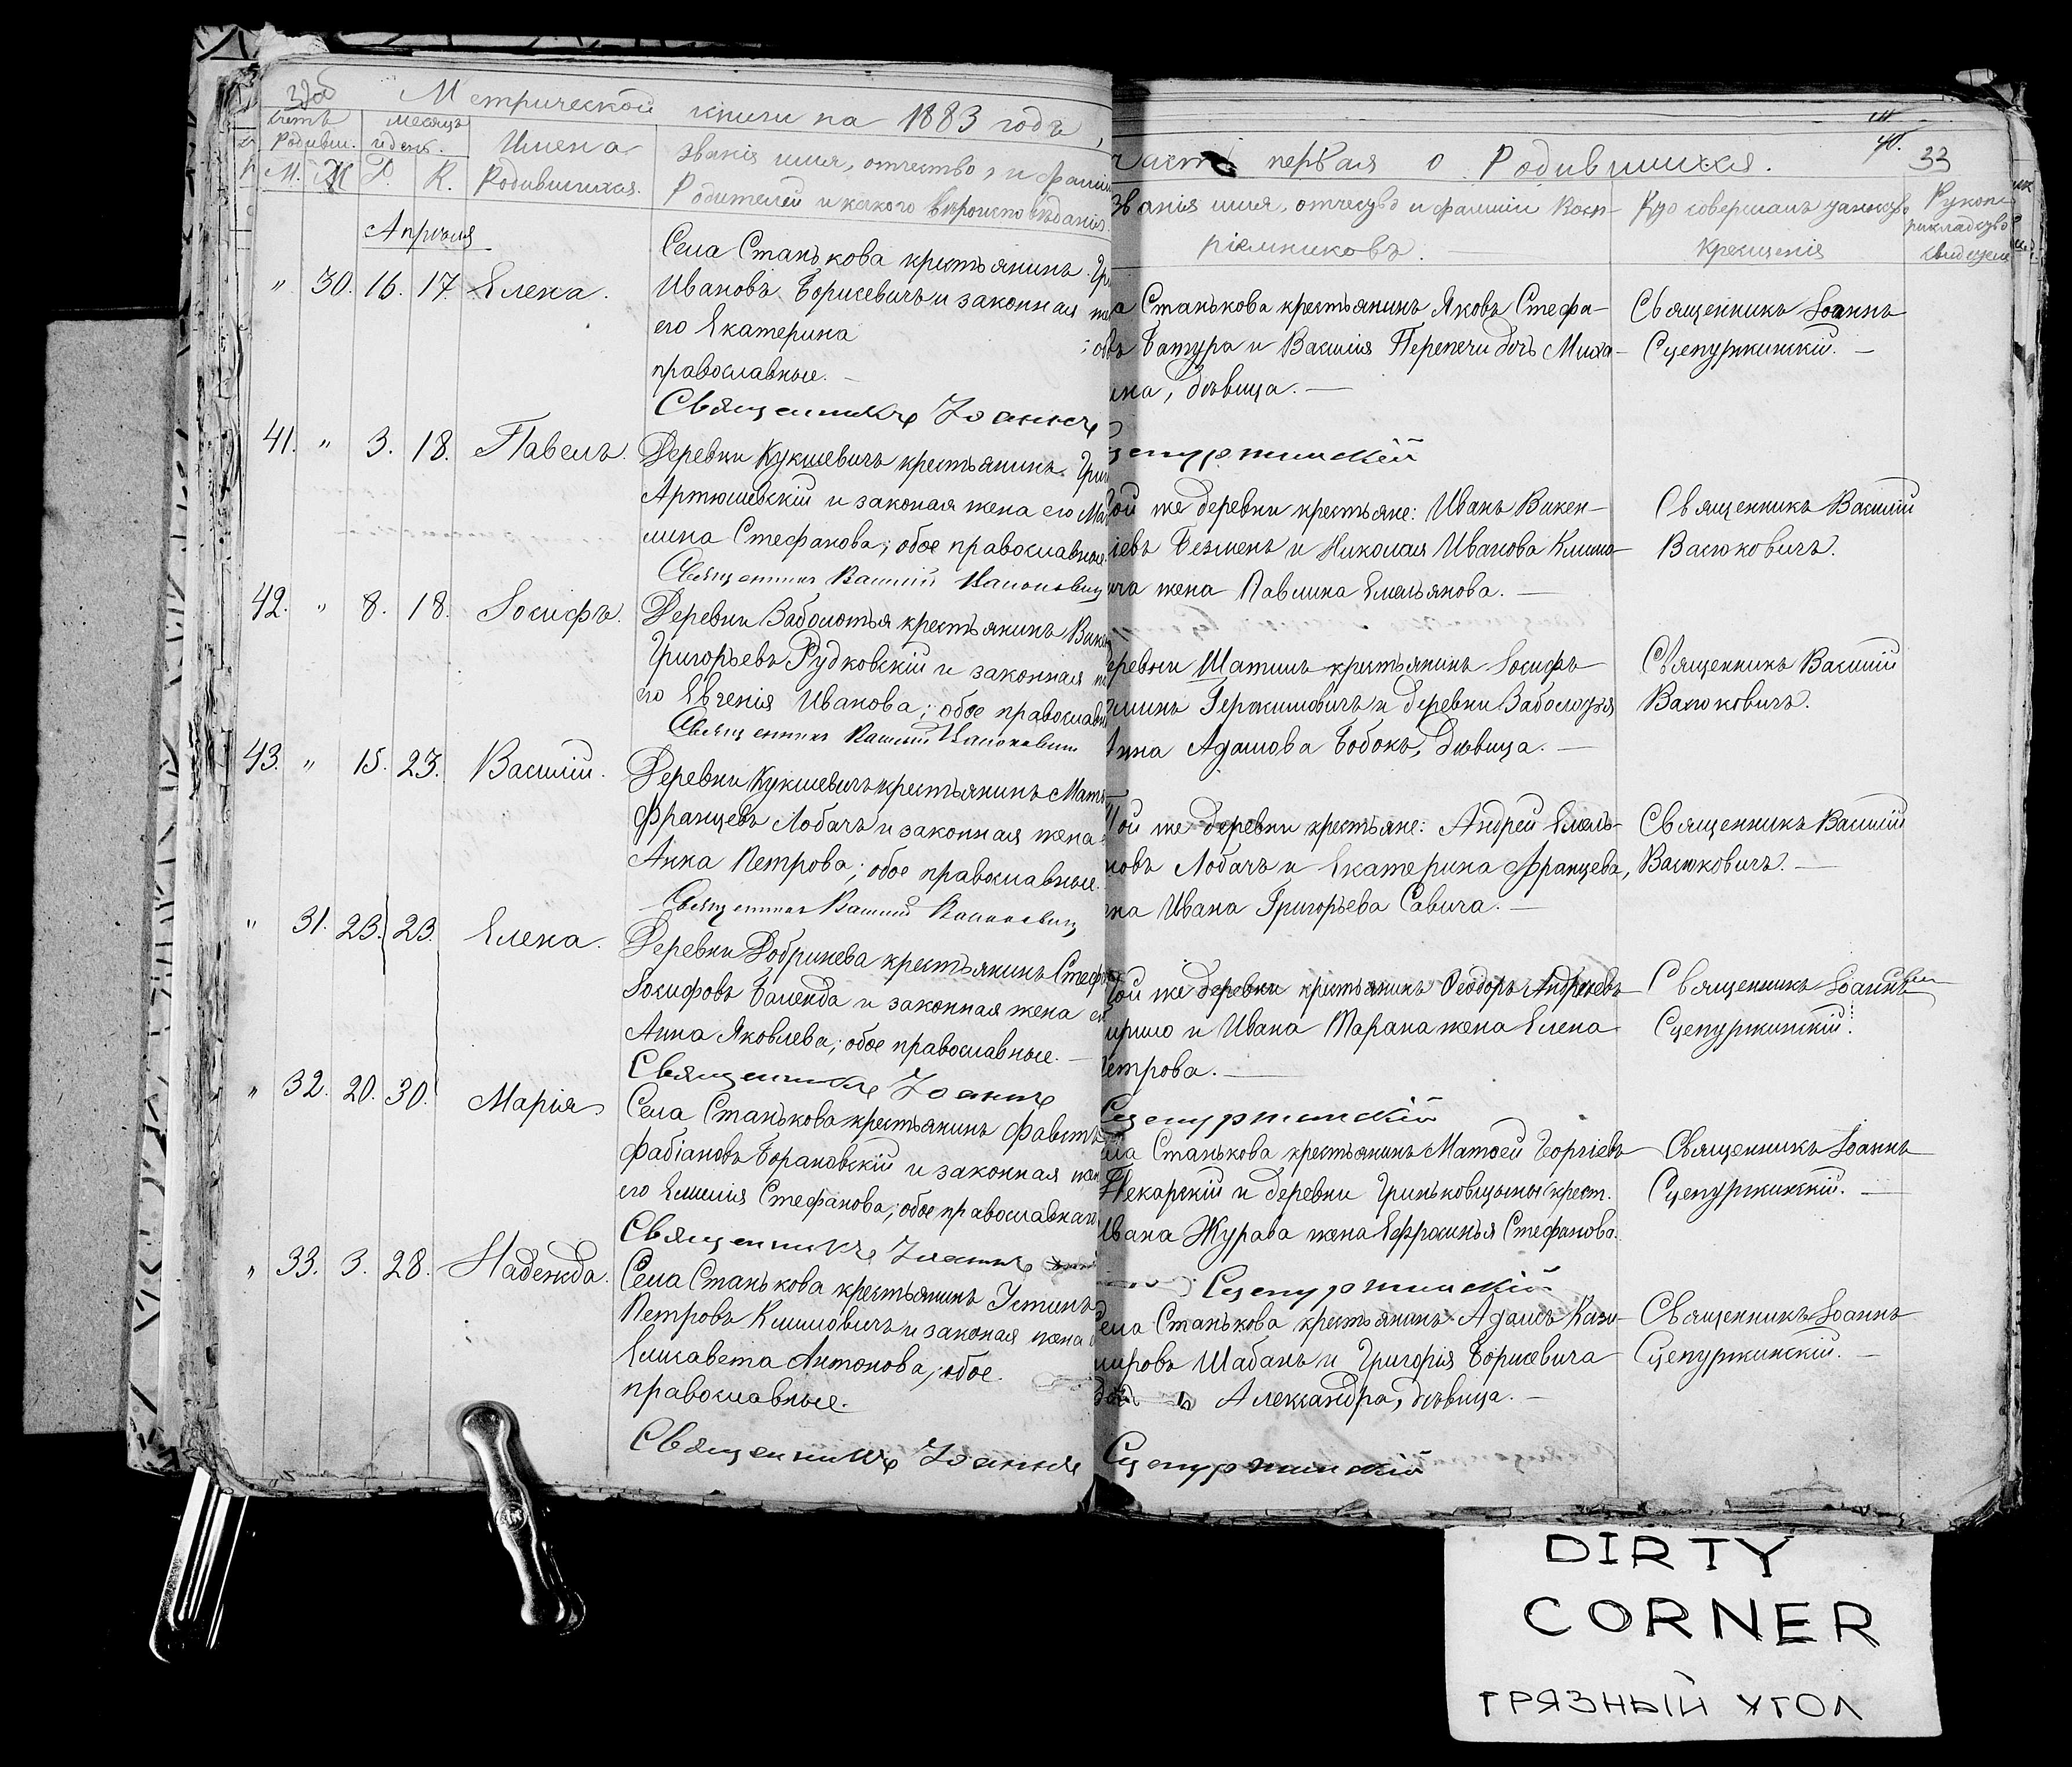 Метрической книги на 1883 годъ,
счетъ
родивш.
месяцъ
и день.
Имена
родившихся.
Званія имя, отчество, и фамил
Родителей и какого вѣроисповѣданія.
М. Ж Р. К.
Апрѣля
" 30. 16. 17. Елена.
Села Станькова крестьянинъ Гри
Ивановъ Борисевичъ и законная же
его Екатерина
православные. —
Священникъ Іоаннъ
41. " 3. 18. Павелъ.
Деревни Кукшевичъ крестьянинъ Григ
Артюшевскій и законая жена его Ма
лина Стефанова; обое православные.
Священникъ Василій Васюковичъ
42. " 8. 18. Іосифъ.
Деревни Заболотья крестьянинъ Вике
Григорьевъ Рудковскій и законная ж
его Евгенія Иванова; обое православн
Священникъ Василій Васюковичъ
43. " 15. 23. Василій.
Деревни Кукшевичъ крестьянинъ Матѳ
Францевъ Лобачъ и законная жена е
Анна Петрова; обое православные.
Священникъ Василій Васюковичъ
" 31. 23. 23. Елена.
Деревни Добринева крестьянинъ Стеф
Іосифовъ Баленда и законная жена е
Анна Яковлева; обое православные. —
Священникъ Іоаннъ
" 32. 20. 30. Марія
Села Станькова крестьянинъ Фавстъ
Фабіановъ Борановскій и законная жен
его Емилія Стефанова; обое православная
Священникъ Іоаннъ
" 33. 3. 28. Надежда.
Села Станькова крестьянинъ Устинъ
Петровъ Климовичъ и законая жена е
Елисавета Антонова; обое
православные.
Священникъ Іоаннъ
часть первая о Родившихся.
40.
33
Званія имя, отчество и фамиліи Восп-
ріемниковъ. —
Кто совершалъ таинство
Крещенія
Рукоп
рикладство
свидетел
а Станькова крестьянинъ Яковъ Стефа-
овъ Батура и Василія Перепечи дочь Миха-
ина, дѣвица. —
Священникъ Іоаннъ
Сцепуржинскій. —
цепуржинскій
Той же деревни крестьяне: Иванъ Викен-
іевъ Безменъ и Николая Иванова Климо-
ича жена Павлина Емельянова. —
Священникъ Василій
Васюковичъ.
еревни Шатилъ крестьянинъ Іосифъ
Герасимовичъ и деревни Заболотья
Анна Адамова Бобокъ, дѣвица. —
Священникъ Василій
Васюковичъ.
Той же деревни крестьяне: Андрей Емель-
новъ Лобачъ и Екатерина Францева,
ена Ивана Григорьева Савича. —
Священникъ Василій
Васюковичъ. —
Той же деревни крестьянинъ Ѳеодоръ Андреевъ
и Ивана Тарана жена Елена
Петрова. —
Священникъ Іоаннъ
Сцепуржинскій.
Сцепуржинскій
ела Станькова крестьянинъ Матѳей Георгіевъ
Пекарскій и деревни Гриньковщины крест.
Ивана Журава жена Ефросинья Стефанова.
Священникъ Іоаннъ
Сцепуржинскій. —
Сцепуржинскій
Села Станькова крестьянинъ Адамъ Кази-
мировъ Шабанъ и Григорія Борисевича
дочь Александра, дѣвица. —
Священникъ Іоаннъ
Сцепуржинскій. —
Сцепуржинскій
DIRTY
CORNER
ГРЯЗНЫЙ УГОЛ